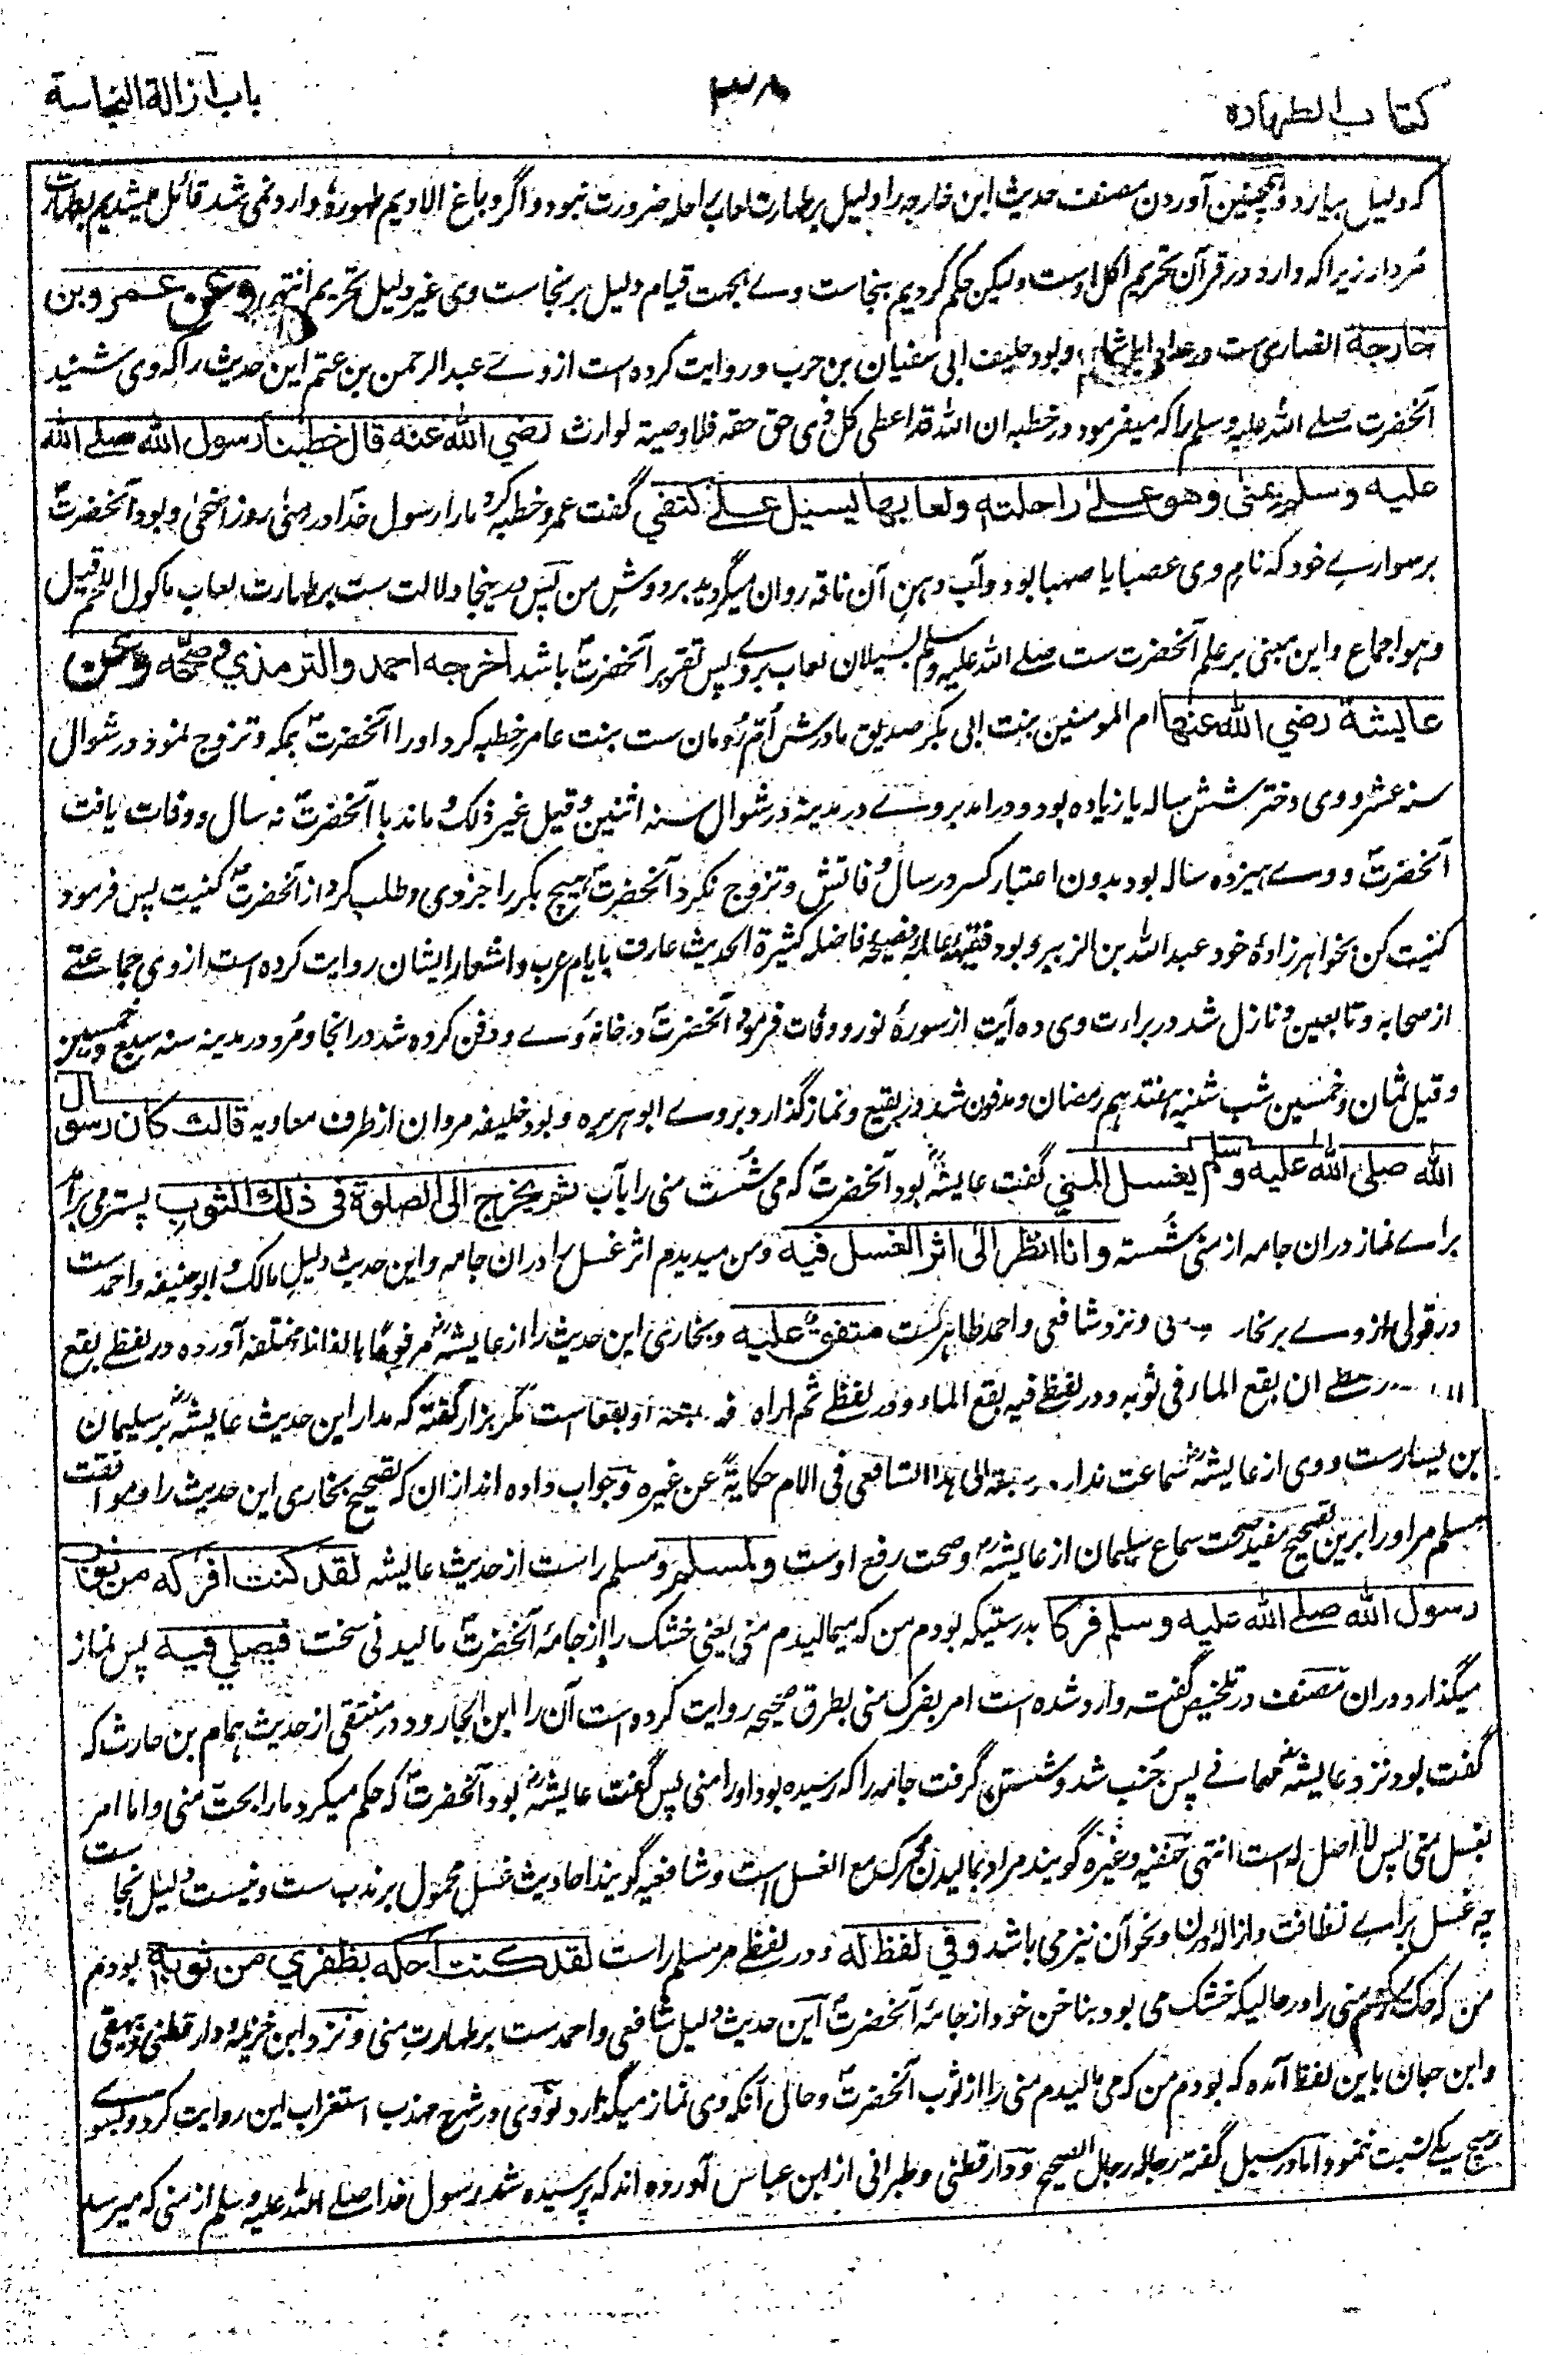 کتاب الطهارة
۳۸
باب ازالة النجاسة
که دلیل بیارد و همچنین آوردن مصنف حدیث ابن خارجه را دلیل بر طهارت لعاب راحله ضرورت نبود و اگر دباغ الادیم طهوره وارد نمی شد قائل میشدیم بطهارت
مردار زیرا که وارد در قرآن تحریم اکل اوست ولیکن حکم کردیم بنجاست وے بجهت قیام دلیل بر نجاست وی غیر دلیل تحریم انتهی وعن عمرو بن
خارجة انصاری ست در اهل شام وبود حلیف ابی سفیان بن حرب و روایت کرده است از وے عبد الرحمن بن غنم این حدیث را که وی شنید
آنحضرت صلے الله علیه وسلم را که میفرمود در خطبه ان الله قد اعطی کل ذی حق حقه فلا وصیة لوارث رضي الله عنه قال خطبنا رسول الله صلے الله
علیه وسلم بمنی وهو علے راحلته ولعابها یسیل علے کتفي گفت عمرو خطبه کرد ما را رسول خدا در منی روز اضحی و بود آنحضرتؐ
بر سواری خود که نام وی عضبا یا صهبا بود و آب دهن آن ناقه روان میگردید بر دوش من پس درینجا دلالت ست بر طهارت لعاب ماکول اللحم قیل
وهو اجماع و این مبنی بر علم آنحضرت ست صلے الله علیه وسلم بسیلان لعاب بروے پس تقریر آنحضرتؐ باشد اخرجه احمد والترمذي وصححه وعن
عایشة رضي الله عنها ام المومنین بنت ابی بکر صدیق مادرش ام رومان ست بنت عامر خطبه کرد او را آنحضرتؐ بمکه و تزوج نمود در شوال
سنه عشر و وی دختر شش ساله یا زیاده بود و درآمد بروے در مدینه در شوال سنه اثنین و قیل غیر ذلک و ماند با آنحضرتؐ نه سال و وفات یافت
آنحضرتؐ و وے هیزده ساله بود بدون اعتبار کسر در سال وفاتش و تزوج نکرد آنحضرتؐ هیچ بکر را جز وی و طلب کرد از آنحضرتؐ کنیت پس فرمود
کنیت کن بخواهرزادۀ خود عبد الله بن الزبیر و بود فقیهه عالمه فصیحه فاضله کثیرة الحدیث عارف بایام عرب و اشعار ایشان روایت کرده است از وی جماعتے
از صحابه و تابعین و نازل شد در براءت وی ده آیت از سورۂ نور و وفات فرمود آنحضرتؐ در خانه وے و دفن کرده شد در انجا و مرد در مدینه سنه سبع وخمسین
و قیل ثمان وخمسین شب شنبه هفتدهم رمضان و مدفون شد در بقیع و نماز گذارد بروے ابو هریره و بود خلیفه مروان از طرف معاویه قالت کان رسول
الله صلی الله علیه وسلم یغسل المني گفت عایشه بود آنحضرتؐ که می شست منی را بآب ثم یخرج الی الصلوة فی ذلك الثوب پستر می برآمد
براے نماز دران جامه از منی شسته وانا انظر الی اثر الغسل فیه و من میدیدم اثر غسل را دران جامه و این حدیث دلیل مالک و ابو حنیفه و احمدست
در قولی از وے بر نجاست منی و نزد شافعی و احمد طاهرست متفق علیه و بخاری این حدیث را از عایشه مرفوعا بالفاظ مختلفه آورده در لفظے بقع
ان بقع الماء فی ثوبه و در لفظے فیه بقع الماء و در لفظے ثم اراه فیه بقعة او بقعا است مگر بزار گفته که مدار این حدیث عایشه بر سلیمان
بن یسارست و وی از عایشه سماعت ندارد الی هذا الشافعی فی الام حکایة عن غیره و جواب داده اند ازان که تصحیح بخاری این حدیث را و موافقت
مسلم مر او را برین تصحیح مفید صحت سماع سلیمان از عایشه و صحت رفع اوست ولمسلم و مسلم راست از حدیث عایشه لقد کنت افرکه من ثوب
رسول الله صلے الله علیه وسلم فرکا بدرستیکه بودم من که میمالیدم منی یعنی خشک را از جامۀ آنحضرتؐ مالیدنی سخت فیصلي فیه پس نماز
میگذارد دران مصنف در تلخیص گفته وارد شده است امر بفرک منی بطرق صحیحه روایت کرده است آن را ابن الجارود در منتقی از حدیث همام بن حارث که
گفت بود نزد عایشه مهمانے پس جنب شد و شستن گرفت جامه را که رسیده بود او را منی پس گفت عایشه بود آنحضرتؐ که حکم میکرد ما را بحت منی و اما امر
بغسل منی پس لا اصل له است انتهی حنفیه و غیره گویند مراد بمالیدن فرک مع الغسل است و شافعیه گویند احادیث غسل محمول بر ندب ست و نیست دلیل نجاست
چه غسل براے نظافت و ازالۀ درن و نحو آن نیز می باشد وفي لفظ له و در لفظے مر مسلم راست لقد کنت احکه بظفري من ثوبه بودم
من که حک میکردم منی را در حالیکه خشک می بود بناخن خود از جامۀ آنحضرتؐ این حدیث دلیل شافعی و احمدست بر طهارت منی و نزد ابن خزیمه و دارقطنی و بیهقی
و ابن حبان باین لفظ آمده که بودم من که می مالیدم منی را از ثوب آنحضرتؐ و حالی آنکه وی نماز میگذارد نووی در شرح مهذب استغراب این روایت کرد و بسوے
هیچ یکے نسبت ننمود اما در سبل گفته رجاله رجال الصحیح و دارقطنی و طبرانی از ابن عباس آورده اند که پرسیده شد رسول خدا صلے الله علیه وسلم از منی که میرسد